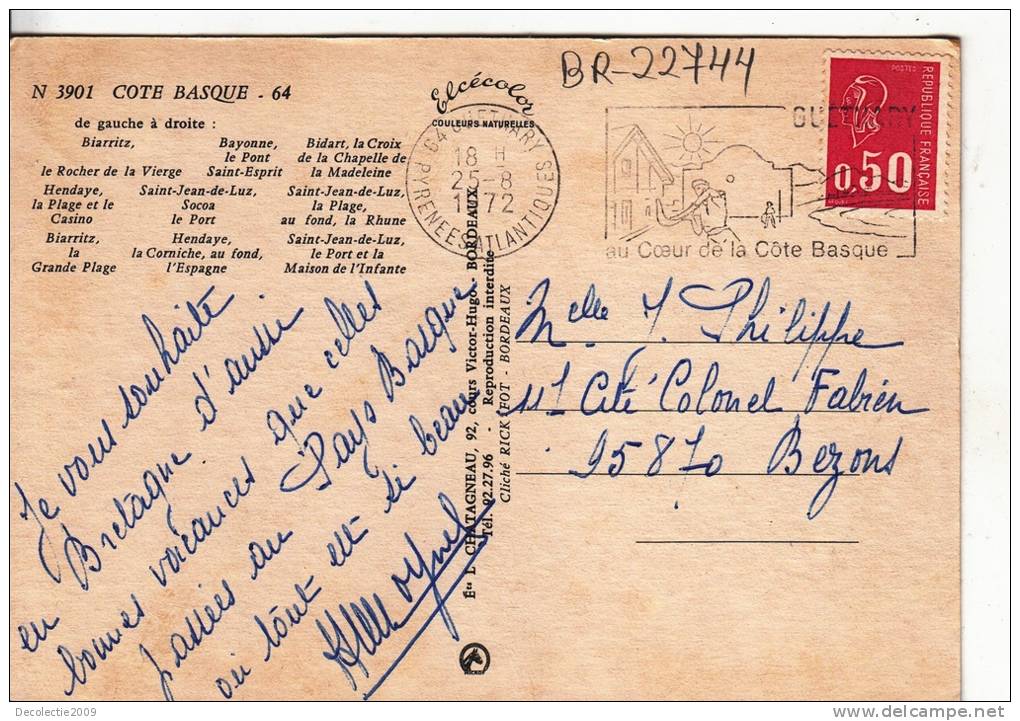 BR-22744
N 3901 COTE BASQUE - 64
de gauche à droite :
Biarritz, Bayonne, Bidart, la Croix
le Pont de la Chapelle de
le Rocher de la Vierge Saint-Esprit la Madeleine
Hendaye, Saint-Jean-de-Luz, Saint-Jean-de-Luz,
la Plage et le Socoa la Plage,
Casino le Port au fond, la Rhune
Biarritz, Hendaye, Saint-Jean-de-Luz,
la la Corniche, au fond, le Port et la
Grande Plage l'Espagne Maison de l'Infante
Elcécolor
COULEURS NATURELLES
64 GUETHARY
18 H
25-8
1972
PYRENEES ATLANTIQUES
GUETHARY
au Cœur de la Côte Basque
POSTES
REPUBLIQUE FRANÇAISE
0,50
Je vous souhaite
en Bretagne d'aussi
bonnes vacances que celles
passées au Pays Basque
où tout est si beau
Ets L. CHATAGNEAU, 92, cours Victor-Hugo - BORDEAUX
Tél. 92.27.96 - Reproduction interdite
Cliché RICK FOT - BORDEAUX
Melle J. Philippe
11 Cité Colonel Fabien
95870 Bezons
Decolectie2009
www.delcampe.net